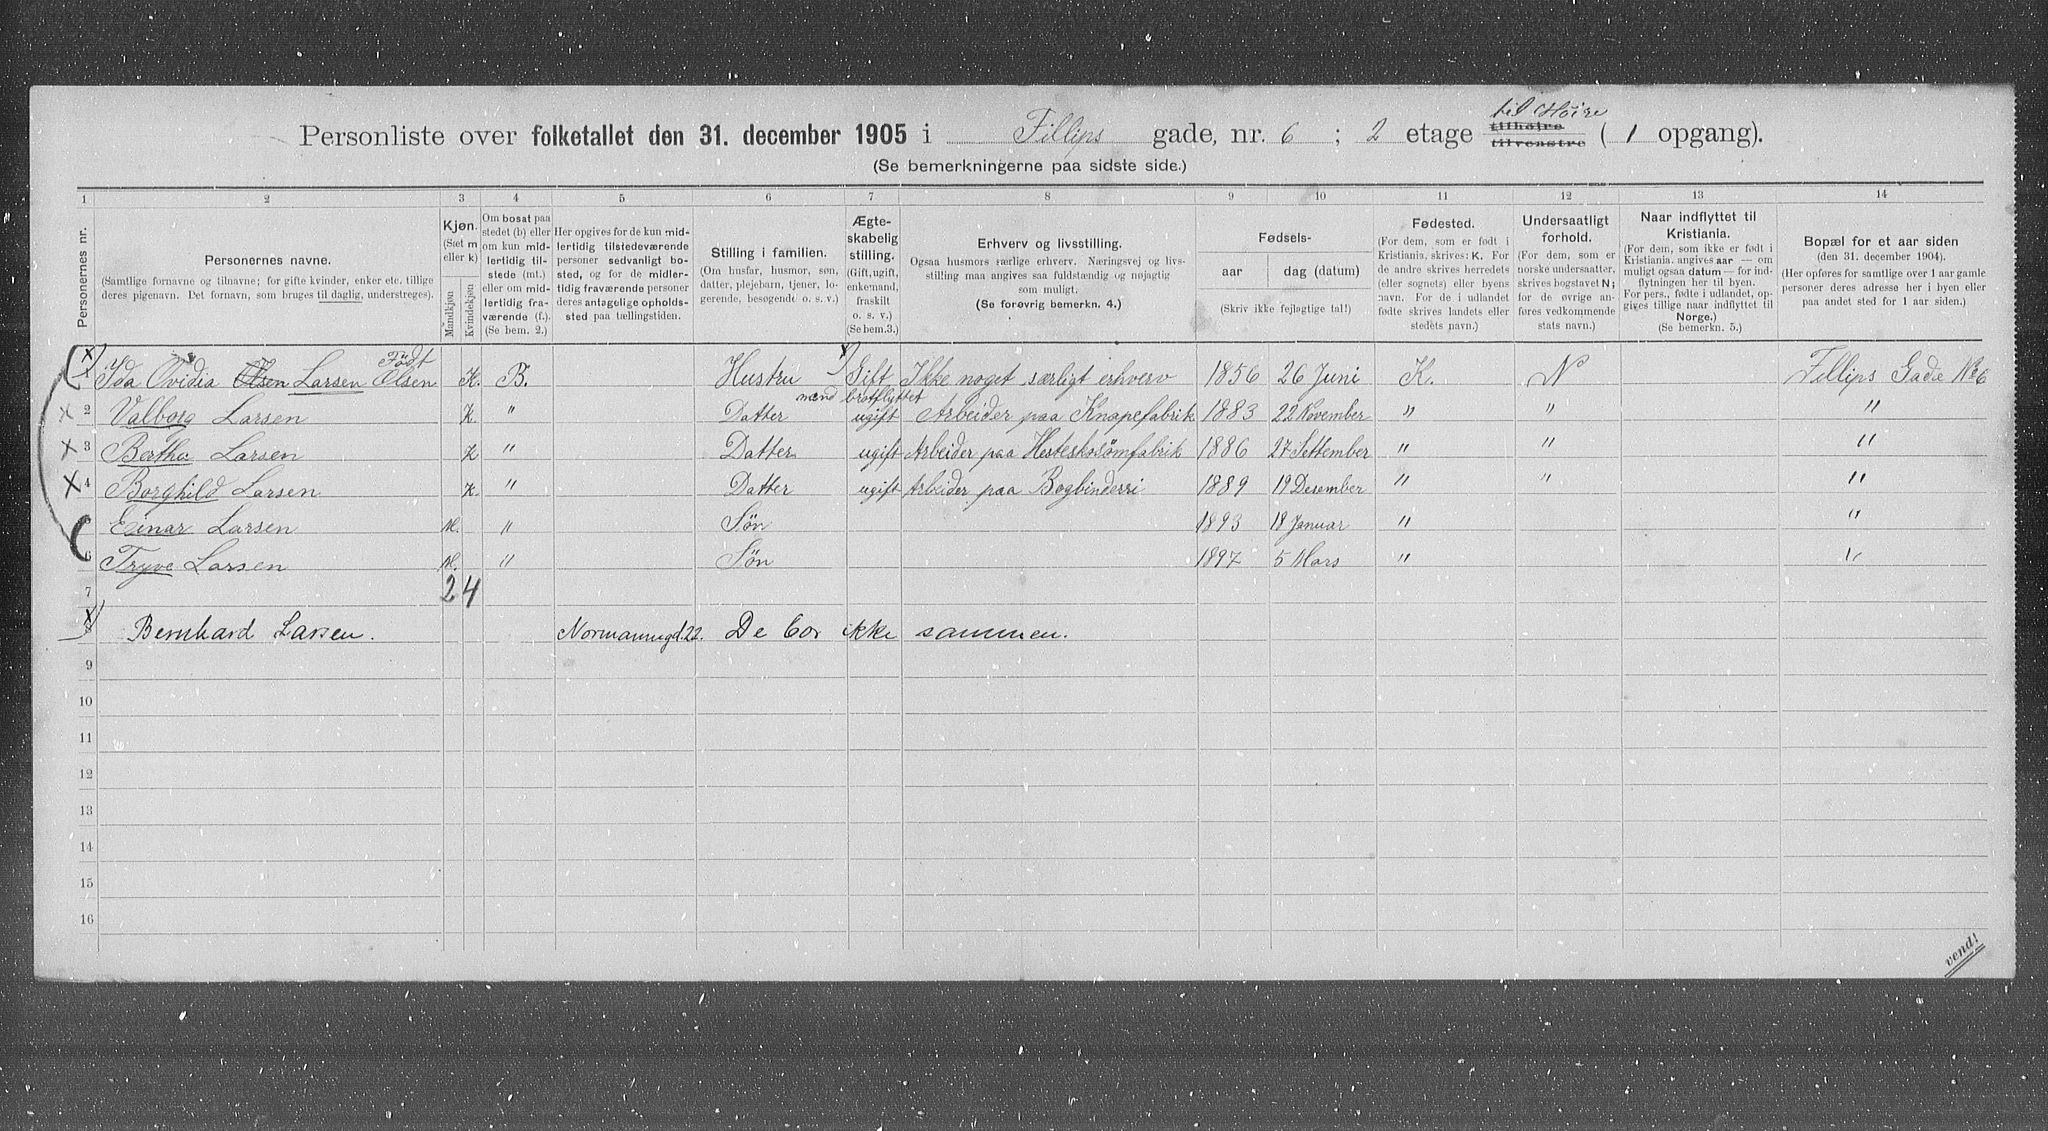 Personliste over folketallet den 31. december 1905 i Fillips gade, nr. 6 ; 2 etage til Höire tilhøire tilvenstre ( 1 opgang).
(Se bemerkningerne paa sidste side.)
1 2 3 4 5 6 7 8 9 10 11 12 13 14
Personernes nr.
Personernes navne.
(Samtlige fornavne og tilnavne; for gifte kvinder, enker etc. tillige
deres pigenavn. Det fornavn, som bruges til daglig, understreges).
Kjøn.
(Sæt m
eller k)
Mandkjøn
Kvindekjøn
Om bosat paa
stedet (b) eller
om kun mid-
lertidig til-
stede (mt.)
eller om mid-
lertidig fra-
værende (f.).
(Se bem. 2.)
Her opgives for de kun mid-
lertidig tilstedeværende
personer sedvanligt bo-
sted, og for de midler-
tidig fraværende personer
deres antagelige opholds-
sted paa tællingstiden.
Stilling i familien.
(Om husfar, husmor, søn,
datter, plejebarn, tjener, lo-
gerende, besøgende o. s. v.)
Ægte-
skabelig
stilling.
(Gift, ugift,
enkemand,
fraskilt
o. s. v.)
(Se bem.3.)
Erhverv og livsstilling.
Ogsaa husmors særlige erhverv. Næringsvej og livs-
stilling maa angives saa fuldstændig og nøjagtig
som muligt.
(Se forøvrig bemerkn. 4.)
Fødsels-
aar dag (datum)
(Skriv ikke fejlagtige tal!)
Fødested.
(For dem, som er født i
Kristiania, skrives: K. For
de andre skrives herredets
(eller sognets) eller byens
navn. For de i udlandet
fødte skrives landets eller
stedets navn.)
Undersaatligt
forhold.
(For dem, som er
norske undersaatter,
skrives bogstavet N;
for de øvrige an-
føres vedkommende
stats navn.)
Naar indflyttet til
Kristiania.
(For dem, som ikke er født i
Kristiania, angives aar — om
muligt ogsaa datum — for ind-
flytningen her til byen.
For pers., fødte i udlandet, op-
gives tillige naar indflyttet til
Norge.)
(Se bemerkn. 5.)
Bopæl for et aar siden
(den 31. december 1904).
(Her opføres for samtlige over 1 aar gamle
personer deres adresse her i byen eller
paa andet sted for 1 aar siden.)
Født
Ida Ovidia Olsen Larsen Olsen K. B. Hustru Gift Ikke noget særligt erhverv 1856 26 Juni K. N Fillips Gade No 6
mand bortflyttet
2 Valborg Larsen K. " Datter ugift Arbeider paa Knapefabrik 1883 22 November " " "
3 Bertha Larsen K " Datter ugift Arbeider paa Hesteskosömfabrik 1886 27 Settember " " "
4 Borghild Larsen K. " Datter ugift Arbeider paa Bogbinderri 1889 19 Desember " " "
Einar Larsen M. " Søn 1893 18 Januar " "
6 Tryve Larsen M. " Søn 1897 5 Mars " "
7 2 4
8 Bernhard Larsen. Normannsgd. 22. De bor ikke sammen.
9
10
11
12
13
14
15
16
vend!